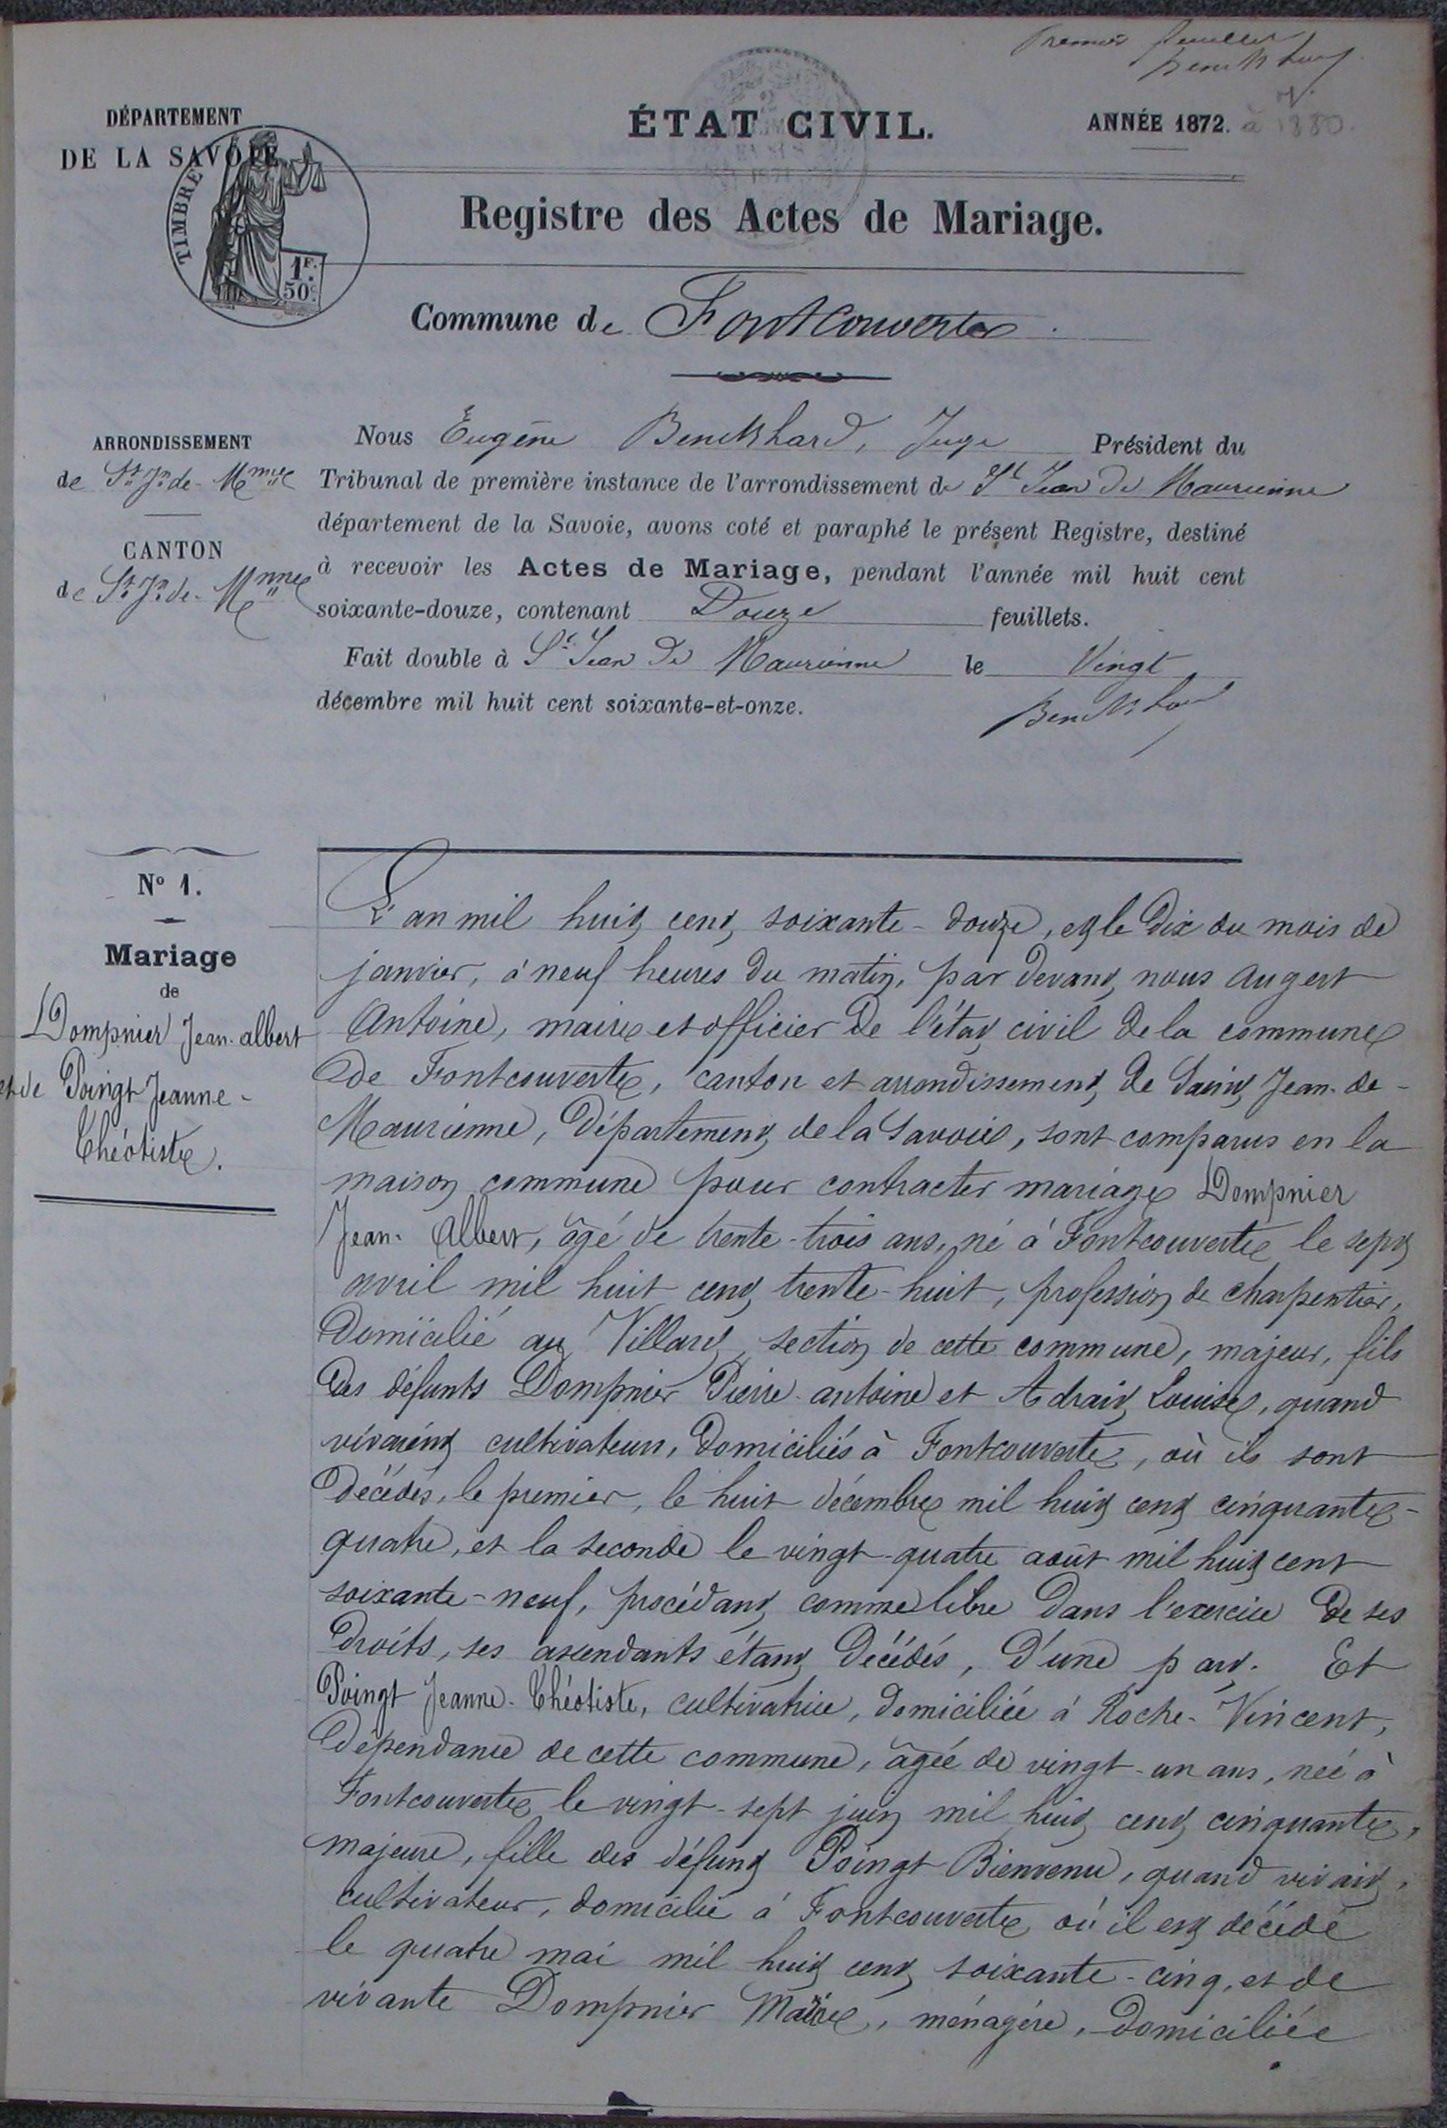 Premier feuillet
DÉPARTEMENT
DE LA SAVOIE
TIMBRE
1F.
50c.
ÉTAT CIVIL.
ANNÉE 1872. à 1880.
Registre des Actes de Mariage.
Commune de Fontcouverte.
ARRONDISSEMENT
de St Jn de Mnne
CANTON
de St Jn de Mnne
Nous Eugène Benckhard, Juge Président du
Tribunal de première instance de l'arrondissement de St Jean de Maurienne
département de la Savoie, avons coté et paraphé le présent Registre, destiné
à recevoir les Actes de Mariage, pendant l'année mil huit cent
soixante-douze, contenant Douze feuillets.
Fait double à St Jean de Maurienne le Vingt
décembre mil huit cent soixante-et-onze.
No 1.
Mariage
de
Dompnier Jean-albert
et de Poingt Jeanne-
Théotiste.
L'an mil huit cent soixante-douze, et le dix du mois de
janvier, à neuf heures du matin, par devant nous Augert
Antoine, maire et officier de l'état civil de la commune
de Fontcouverte, canton et arrondissement de Saint Jean-de-
Maurienne, Département de la Savoie, sont comparus en la
maison commune pour contracter mariage Dompnier
Jean-Albert, âgé de trente-trois ans, né à Fontcouverte le sept
avril mil huit cent trente-huit, profession de charpentier,
Domicilié au Villard, section de cette commune, majeur, fils
des défunts Dompnier Pierre-antoine et Adrait Louise, quand
vivaient cultivateurs, domiciliés à Fontcouverte, où ils sont
Décédés, le premier, le huit décembre mil huit cent cinquante-
quatre, et la seconde le vingt-quatre août mil huit cent
soixante-neuf, procédant comme libre dans l'exercice de ses
Droits, ses ascendants étant Décédés, D'une part. Et
Poingt Jeanne-Théotiste, cultivatrice, domiciliée à Roche-Vincent,
Dépendance de cette commune, âgée de vingt-un ans, née à
Fontcouverte le vingt-sept juin mil huit cent cinquante,
majeure, fille des défunt Poingt Bienvenu, quand vivait,
cultivateur, domicilié à Fontcouverte où il est décédé
le quatre mai mil huit cent soixante-cinq, et de
vivante Dompnier Marie, ménagère, domiciliée